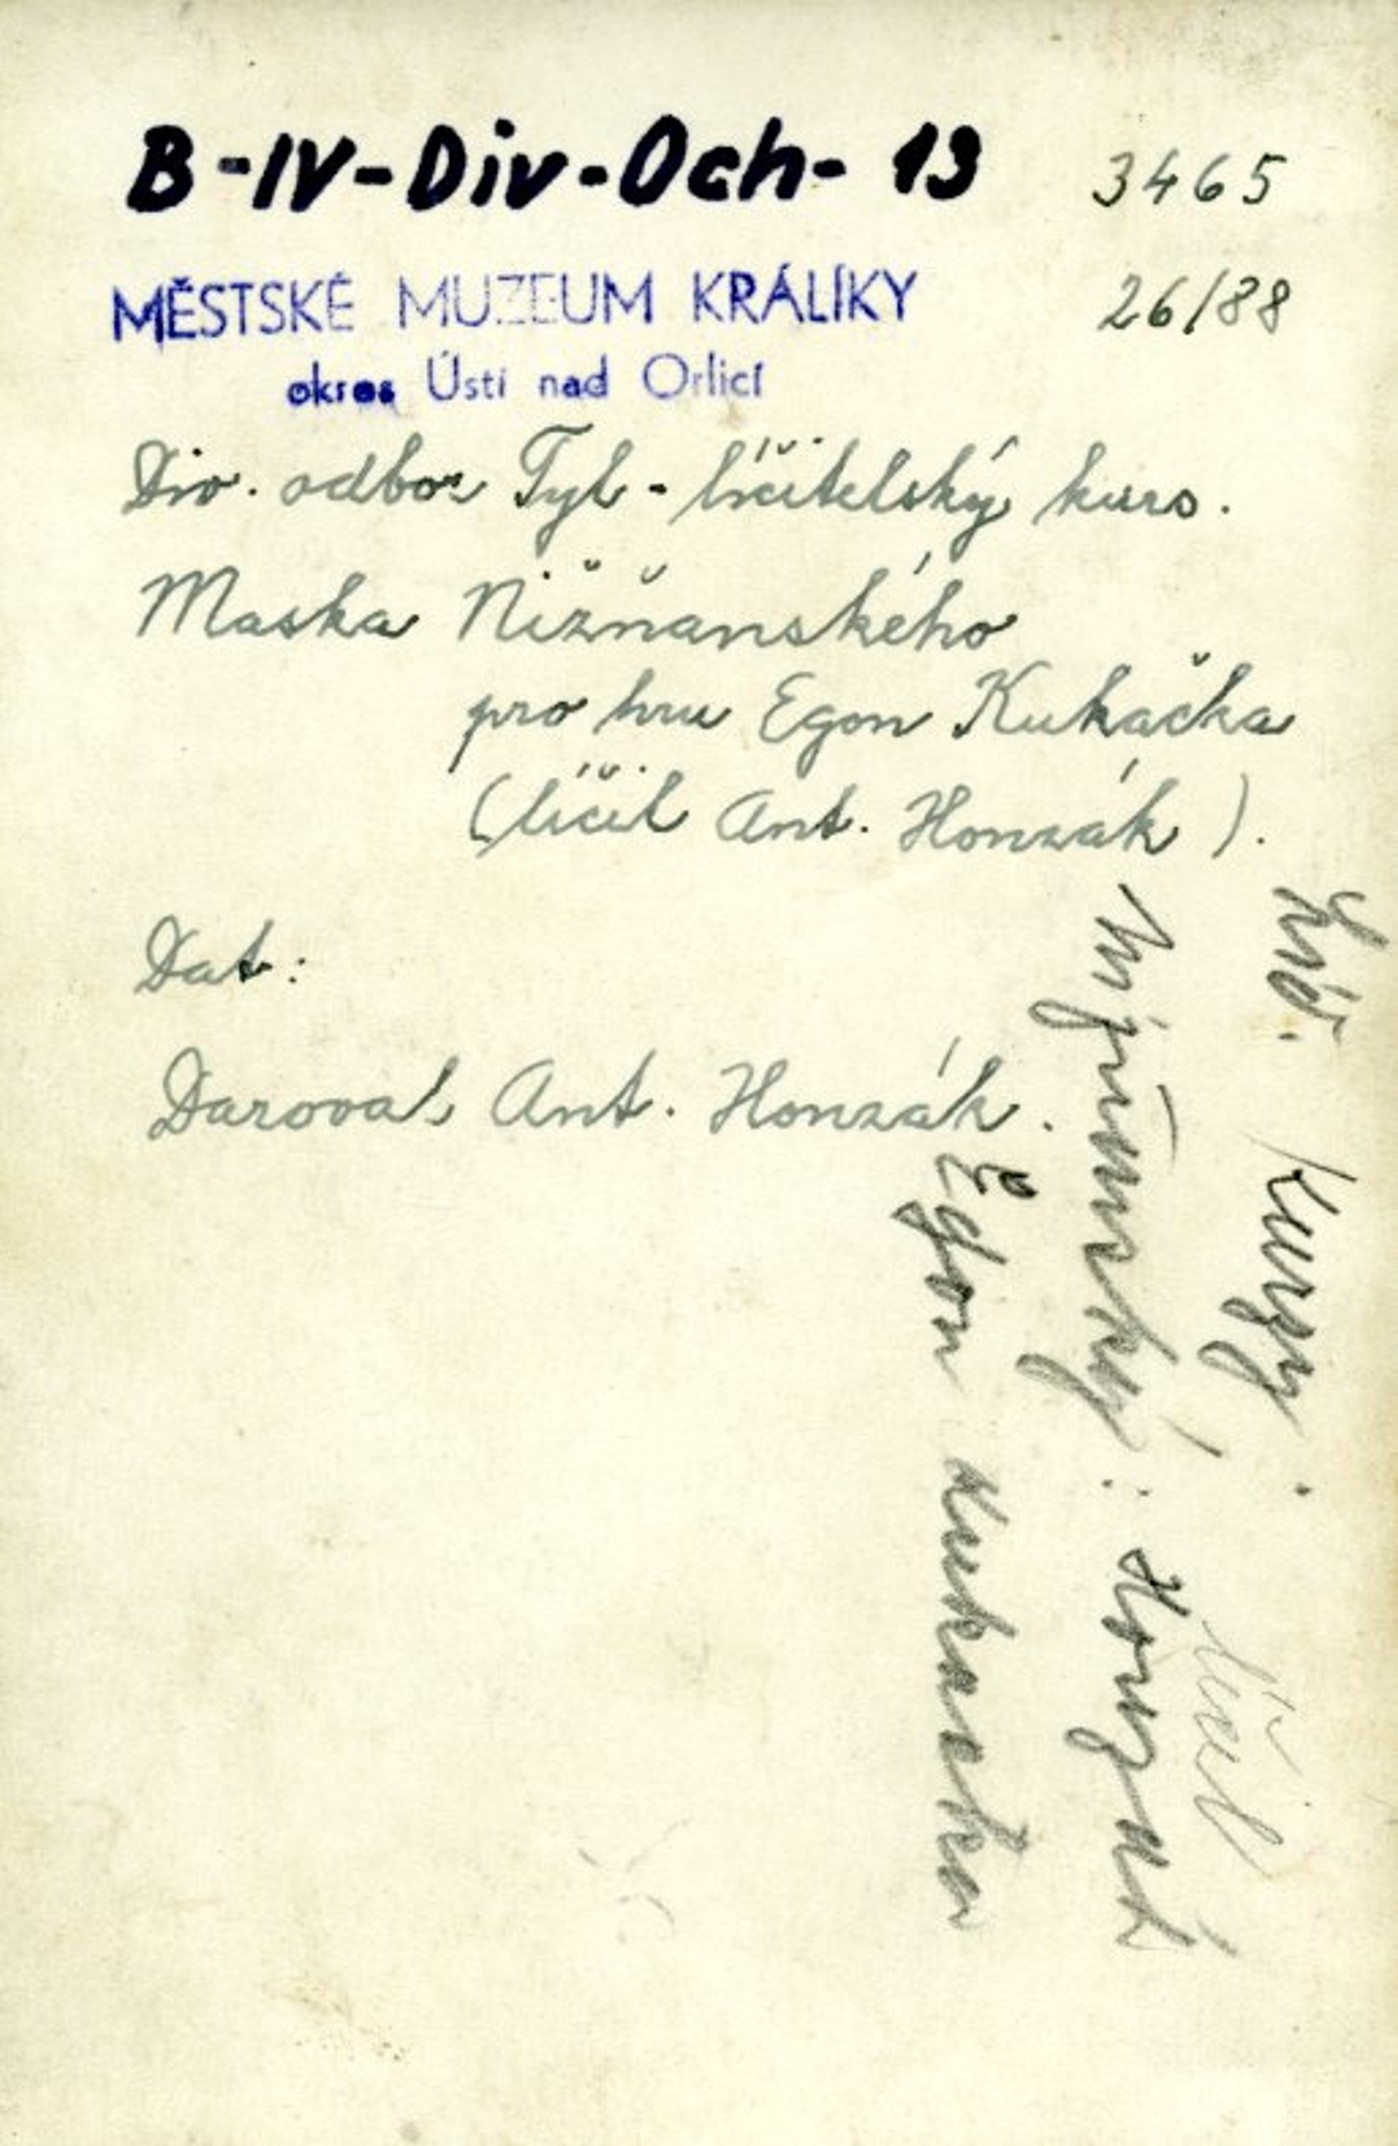 B-IV-Div-Och-13 3465
MĚSTSKÉ MUZEUM KRÁLÍKY 26/88
okres Ústí nad Orlicí
Div. odbor Tyl - líčitelský kurs.
Maska Nižňanského
pro hru Egon Kukačka
(líčil Ant. Honzák).
Dat:
Daroval Ant. Honzák.
Kurzy.
líčil
: Honzák
Egon Kukačka